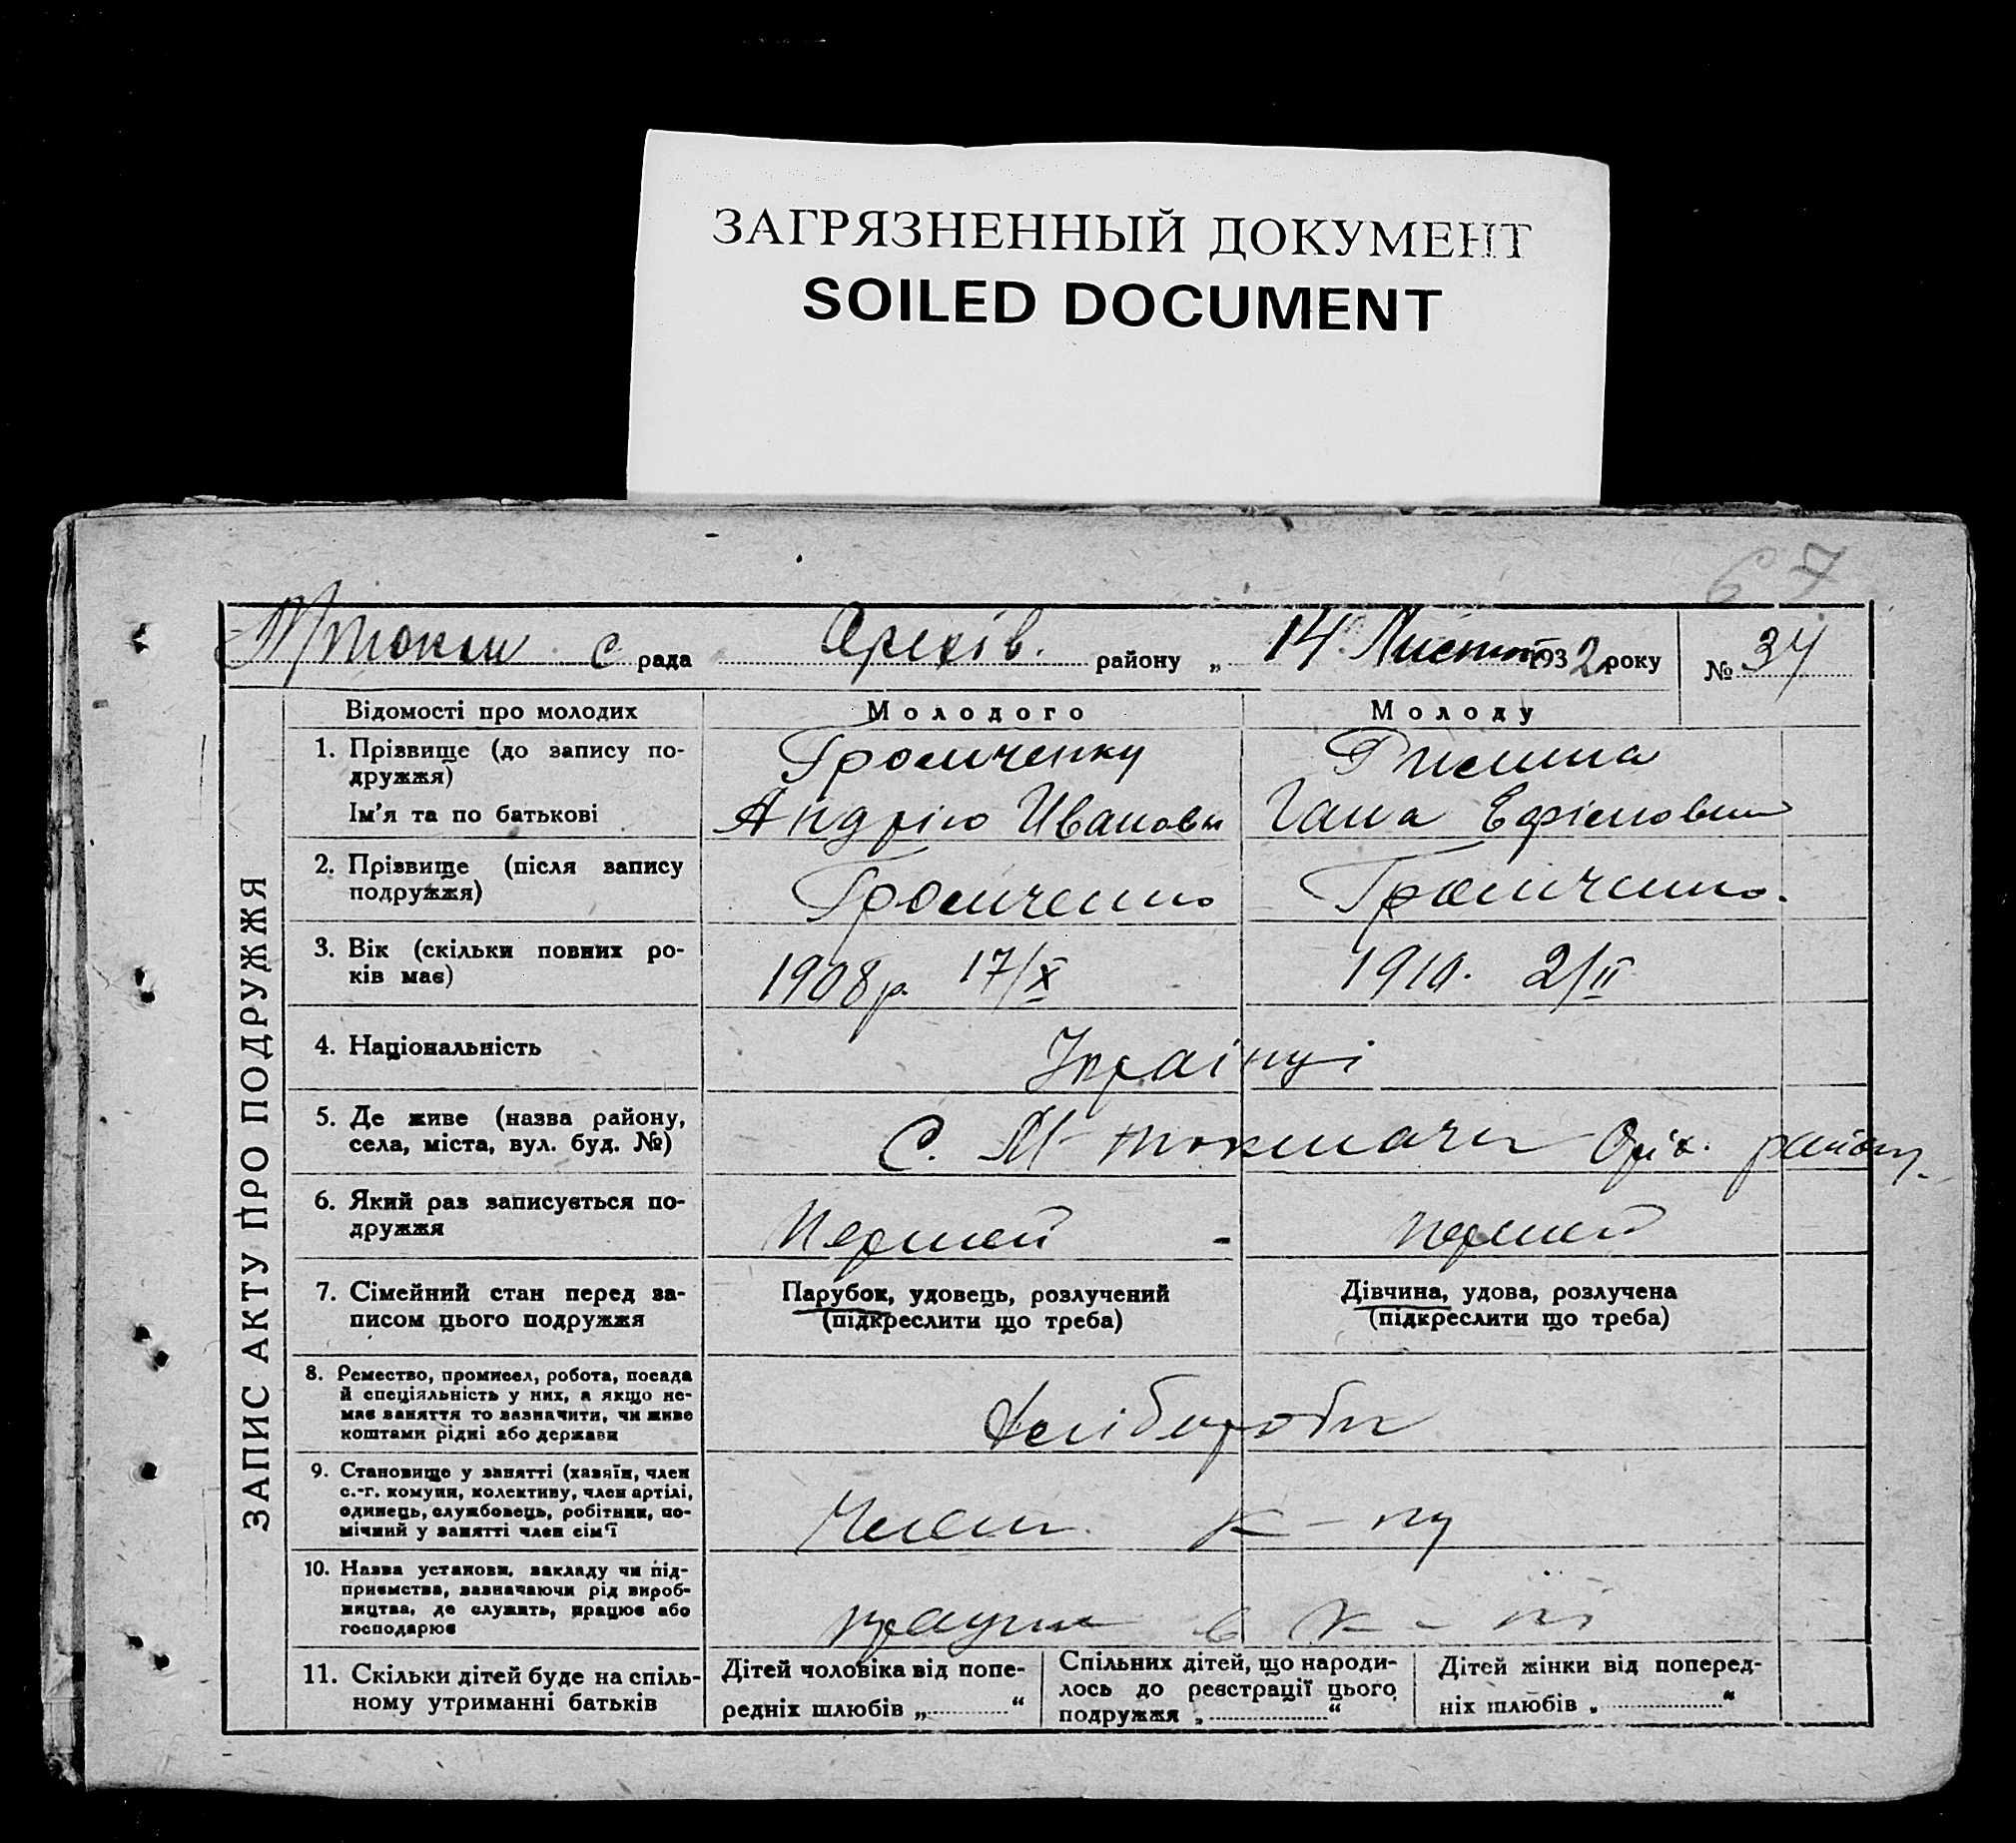 ЗАГРЯЗНЕННЫЙ ДОКУМЕНТ
SOILED DOCUMENT
67
с рада Оріхів. району „ 14 Листоп 1932 року № 34
ЗАПИС АКТУ ПРО ПОДРУЖЖЯ
Відомості про молодих Молодого Молоду
1. Прізвище (до запису по-
дружжя)
Громченку
Ім'я та по батькові Андрію Ивановы Гана Ефімовны
2. Прізвище (після запису
подружжя)
Громченко Громченко.
3. Вік (скільки повних ро-
ків має)
1908 р. 17/X 1910. 2/II
4. Національність Українці
5. Де живе (назва району,
села, міста, вул. буд. №)
С. М-токмачи Оріх. району.
6. Який раз записується по-
дружжя
Першей - першей
7. Сімейний стан перед за-
писом цього подружжя
Парубок, удовець, розлучений
(підкреслити що треба)
Дівчина, удова, розлучена
(підкреслити що треба)
8. Ремество, промисел, робота, посада
й спеціяльність у них, а якщо не-
має заняття то зазначити, чи живе
коштами рідні або держави
Хліборобы
9. Становище у занятті (хазяїн, член
с.-г. комуни, колективу, член артілі,
одинець, службовець, робітник, по-
мічний у занятті член сім'ї
Члени к-пу
10. Назва установи, закладу чи під-
приємства, зазначаючи рід вироб-
ництва, де служить, працює або
господарює
в к-пі
11. Скільки дітей буде на спіль-
ному утриманні батьків
Дітей чоловіка від попе-
редніх шлюбів „ “
Спільних дітей, що народи-
лось до реєстрації цього
подружжя „ “
Дітей жінки від поперед-
ніх шлюбів „ “